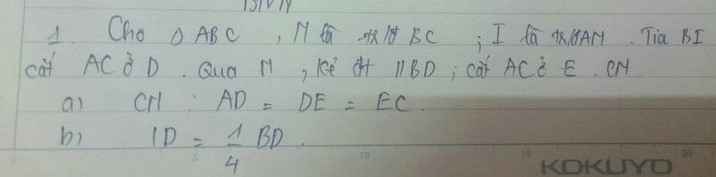 1. Cho Δ ABC , M là BC ; I là AM . Tia BI
cắt AC ở D . Qua M , kẻ // BD ; cắt AC ở E . CM
a) CM : AD = DE = EC .
b) ID = 1/4 BD .
KOKUYO